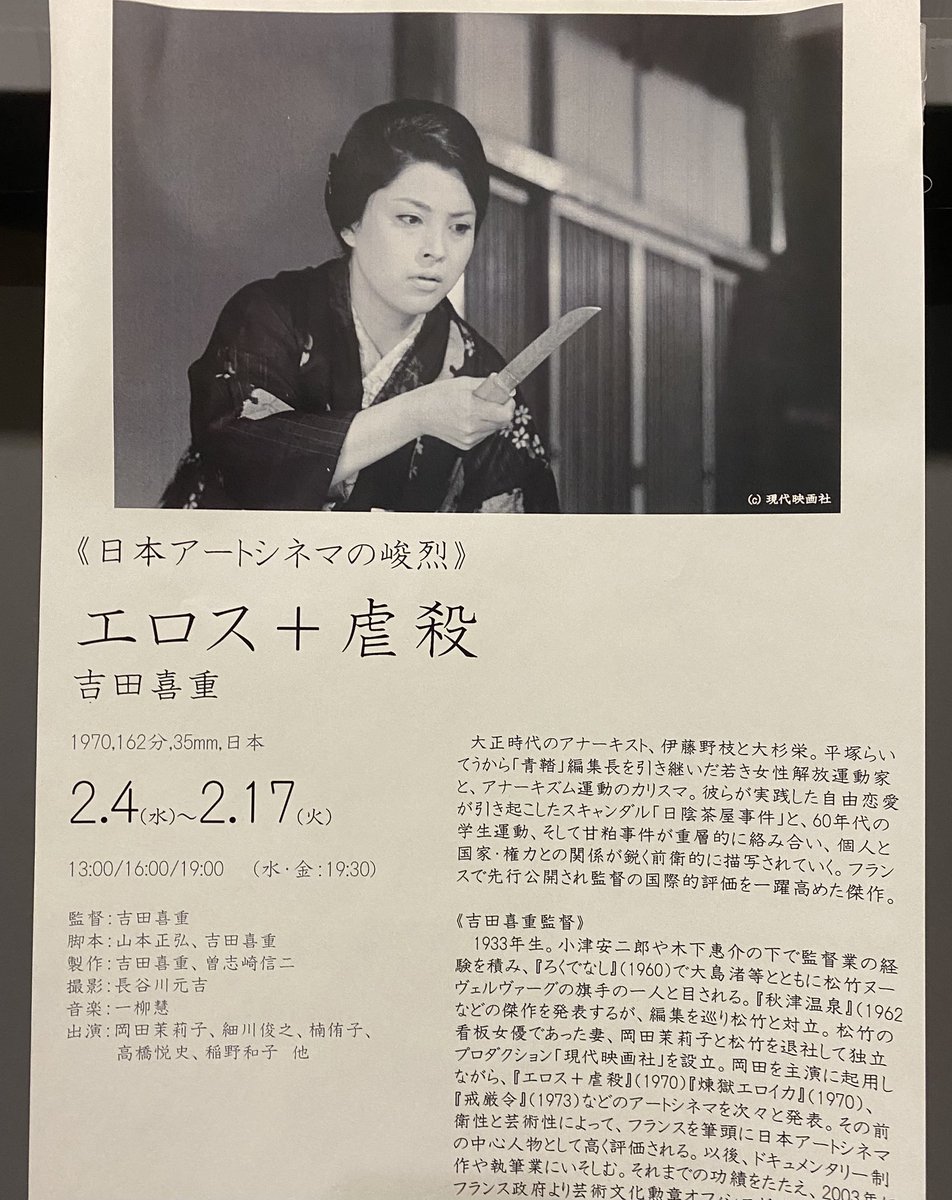 (c) 現代映画社
《日本アートシネマの峻烈》
エロス＋虐殺
吉田喜重
1970,162分,35mm,日本
2.4(水)～2.17(火)
13:00/16:00/19:00　（水・金:19:30）
監督:吉田喜重
脚本:山本正弘、吉田喜重
製作:吉田喜重、曽志崎信二
撮影:長谷川元吉
音楽:一柳慧
出演:岡田茉莉子、細川俊之、楠侑子、
高橋悦史、稲野和子 他
大正時代のアナーキスト、伊藤野枝と大杉栄。平塚らい
てうから「青鞜」編集長を引き継いだ若き女性解放運動家
と、アナーキズム運動のカリスマ。彼らが実践した自由恋愛
が引き起こしたスキャンダル「日陰茶屋事件」と、60年代の
学生運動、そして甘粕事件が重層的に絡み合い、個人と
国家・権力との関係が鋭く前衛的に描写されていく。フラン
スで先行公開され監督の国際的評価を一躍高めた傑作。
《吉田喜重監督》
1933年生。小津安二郎や木下惠介の下で監督業の経
験を積み、『ろくでなし』(1960)で大島渚等とともに松竹ヌー
ヴェルヴァーグの旗手の一人と目される。『秋津温泉』(1962
などの傑作を発表するが、編集を巡り松竹と対立。松竹の
看板女優であった妻、岡田茉莉子と松竹を退社して独立
プロダクション「現代映画社」を設立。岡田を主演に起用し
ながら、『エロス＋虐殺』(1970)『煉獄エロイカ』(1970)、
『戒厳令』(1973)などのアートシネマを次々と発表。その前
衛性と芸術性によって、フランスを筆頭に日本アートシネマ
の中心人物として高く評価される。以後、ドキュメンタリー制
作や執筆業にいそしむ。それまでの功績をたたえ、2003年
フランス政府より芸術文化勲章オフィシ